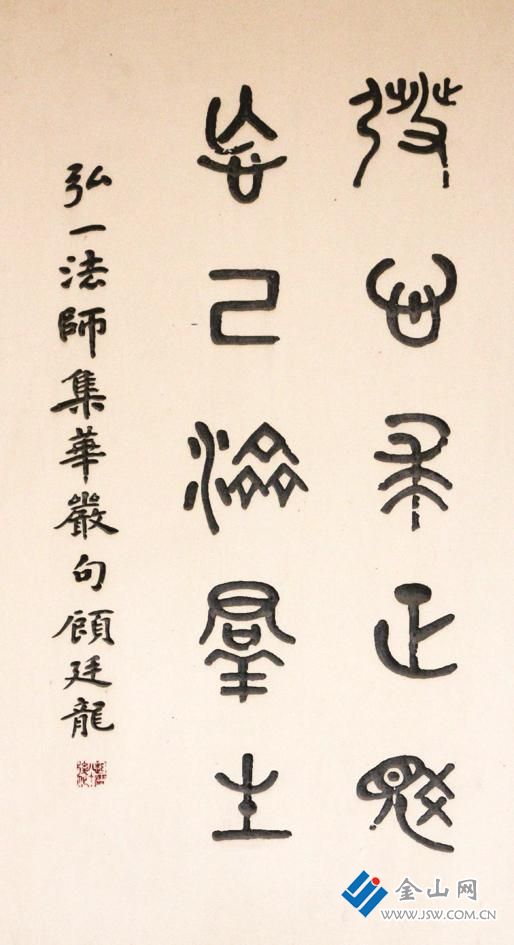 發心求正覺
忘己濟羣生
弘一法師集華嚴句顧廷龍
金山网
WWW.JSW.COM.CN